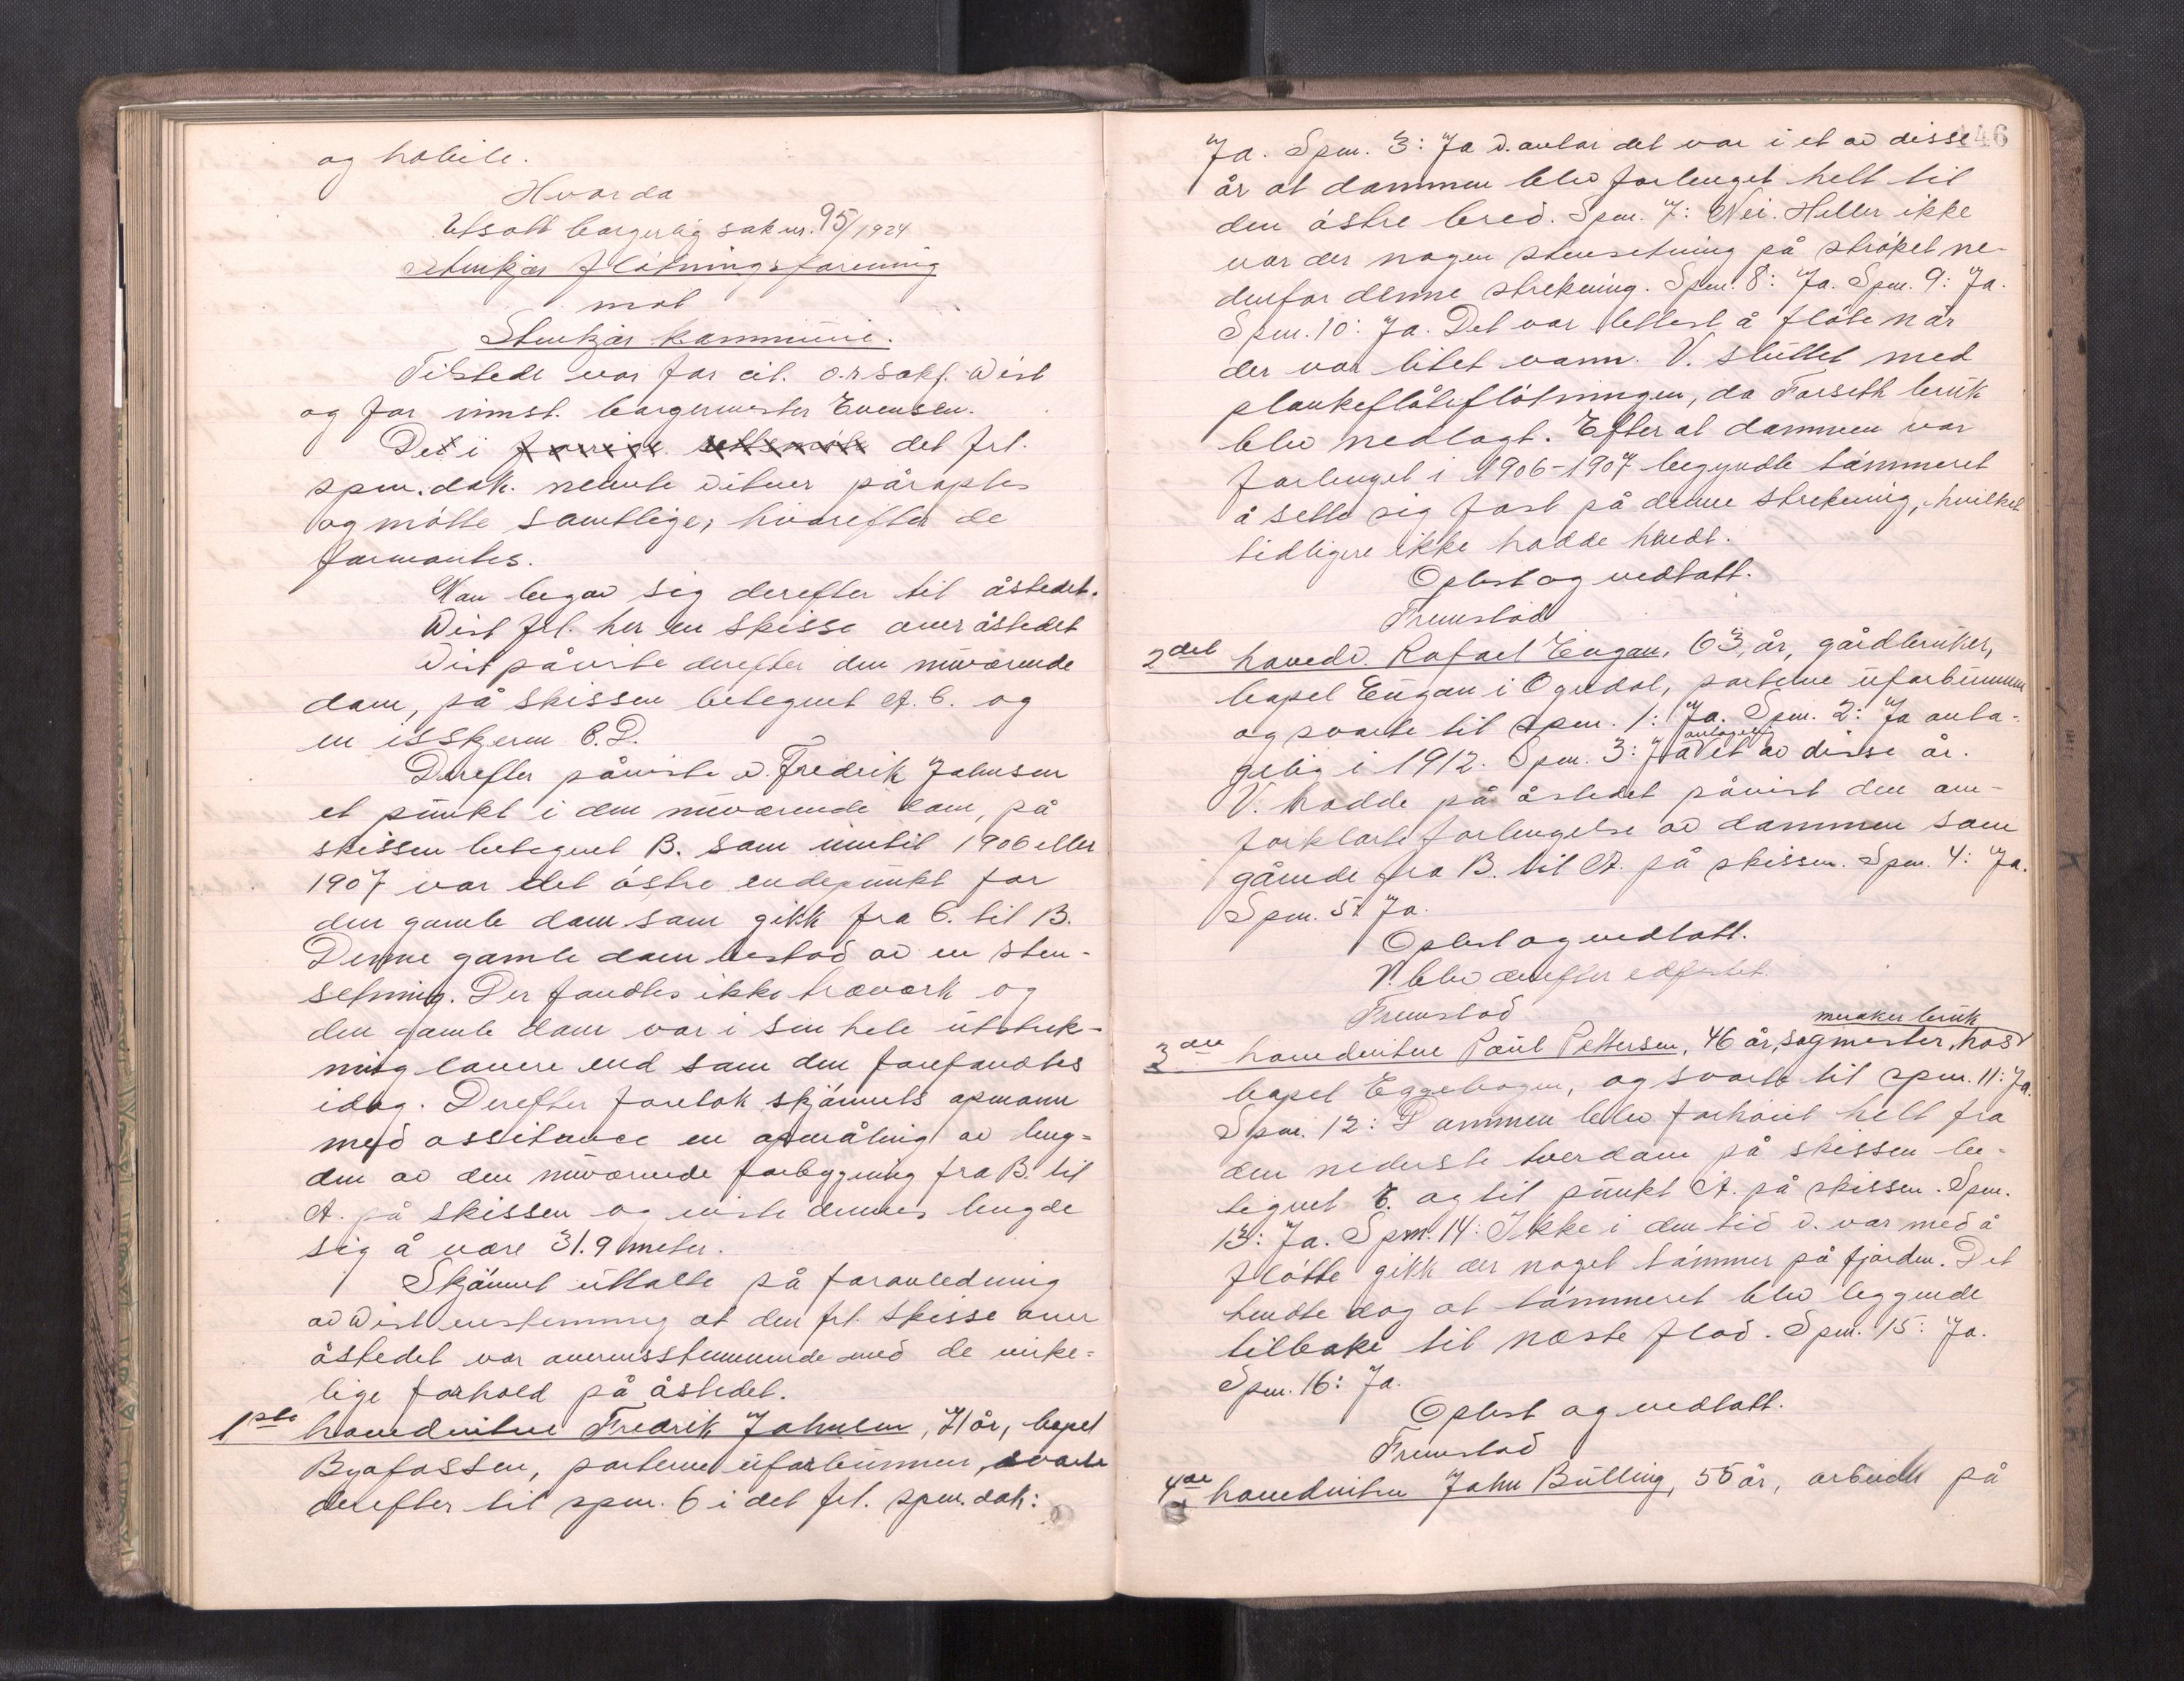 og habile.
Hvorda
Utsatt borgerlig sak nr. 95/1924
Stenkjær Fløtningsforening
mot
Stenkjær kommune.
Tilstede var for cit. o.r.sakf. Wist
og for innst. borgermester Evensen.
De i forrige rettsmøte det frl.
spm.dok. nevnte vitner påroptes
og møtte samtlige, hvorefter de
formantes.
Man begav sig derefter til åstedet.
Wist frl. her en skisse over åstedet
Wist påviste derefter den nuværende
dam, på skissen betegnet A. C. og
en isskjerm C.D.
Derefter påviste v. Fredrik Johnsen
et punkt i den nuværende dam, på
skissen betegnet B. som inntil 1906 eller
1907 var det østre endepunkt for
den gamle dam som gikk fra C. til B.
Denne gamle dam bestod av en sten-
setning. Der fandtes ikke træverk og
den gamle dam var i sin hele utstrek-
ning lavere end som den forefandtes
idag. Derefter foretok skjønnets opmann
med assitance en opmåling av leng-
den av den nuværende forbygning fra B. til
A. på skissen og viste dennes lengde
sig å være 31.9 meter.
Skjønnet uttalte på foranledning
av Wist enstemmig at den frl. skisse over
åstedet var overensstemmende med de virke-
lige forhold på åstedet.
1ste hovedvitne Fredrik Johnsen, 71 år, bopel
Byafossen, parterne uforbunnen, svarte
derefter til spm. 6 i det frl. spm.dok:
146
Ja. Spm. 3: Ja v. antar det var i et av disse
år at dammen blev forlenget helt til
den østre bred. Spm. 7: Nei. Heller ikke
var der nogen stensetning på strøket ne-
denfor denne strekning. Spm. 8: Ja. Spm. 9: Ja.
Spm. 10: Ja. Det var lettest å fløte når
der var litet vann. V. sluttet med
plankeflåtefløtningen, da Forseth bruk
blev nedlagt. Efter at dammen var
forlenget i 1906-1907 begyndte tømmeret
å sette sig fast på denne strekning, hvilket
tidligere ikke hadde hendt.
Oplest og vedtatt.
Fremstod
2det hovedv. Rafael Engan, 63 år, gårdbruker,
bopel Engan i Ogndal, parterne uforbunnen
og svarte til spm. 1: Ja. Spm. 2: Ja anta-
gelig i 1912. Spm. 3: Ja antagelig et av disse år.
V. hadde på åstedet påvist den om-
forklarte forlengelse av dammen som
gående fra B. til A. på skissen. Spm. 4: Ja.
Spm. 5: Ja.
Oplest og vedtatt.
V. blev derefter edfestet.
Fremstod
meraker bruk
3die hovedvitne Paul Pettersen, 46 år, sagmester, hos
bopel Eggebogen, og svarte til spm. 11: Ja.
Spm. 12: Dammen blev forhøiet helt fra
den nederste tverdam på skissen be-
tegnet E. og til punkt A. på skissen. Spm.
13: Ja. Spm. 14: Ikke i den tid v. var med å
fløtte gikk der noget tømmer på fjorden. Det
hendte dog at tømmeret blev liggende
tilbake til næste flod. Spm. 15: Ja.
Spm. 16: Ja.
Oplest og vedtatt.
Fremstod
4de hovedvitne John Bulling, 55 år, arbeider på